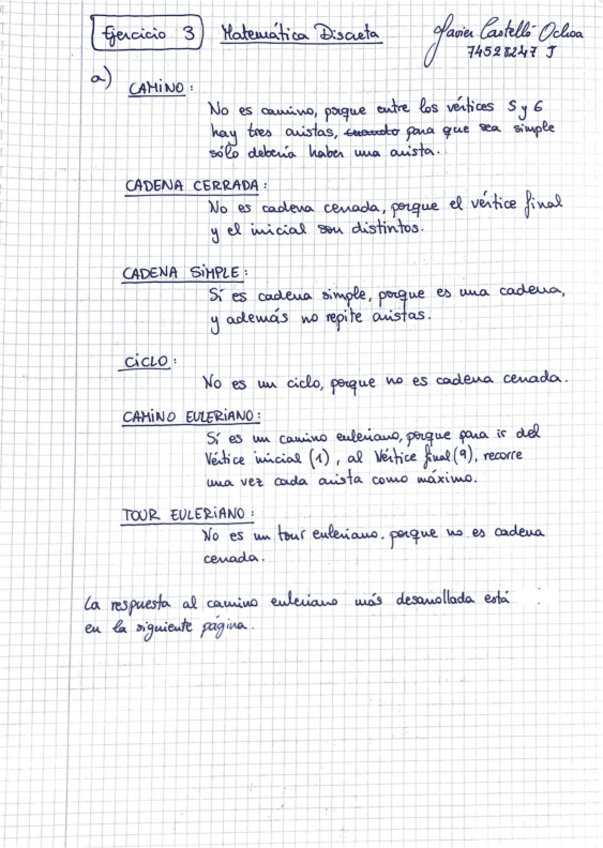 Ejercicio 3 Matemática Discreta Javier Castelló Ochoa
74528247 J
a) CAMINO:
No es camino, porque entre los vértices 5 y 6
hay tres aristas, cuando para que sea simple
sólo debería haber una arista.
CADENA CERRADA:
No es cadena cerrada, porque el vértice final
y el inicial son distintos.
CADENA SIMPLE:
Sí es cadena simple, porque es una cadena,
y además no repite aristas.
CICLO:
No es un ciclo, porque no es cadena cerrada.
CAMINO EULERIANO:
Sí es un camino euleriano, porque para ir del
Vértice inicial (1), al Vértice final (9), recorre
una vez cada arista como máximo.
TOUR EULERIANO:
No es un tour euleriano, porque no es cadena
cerrada.
La respuesta al camino euleriano más desarrollada está
en la siguiente página.